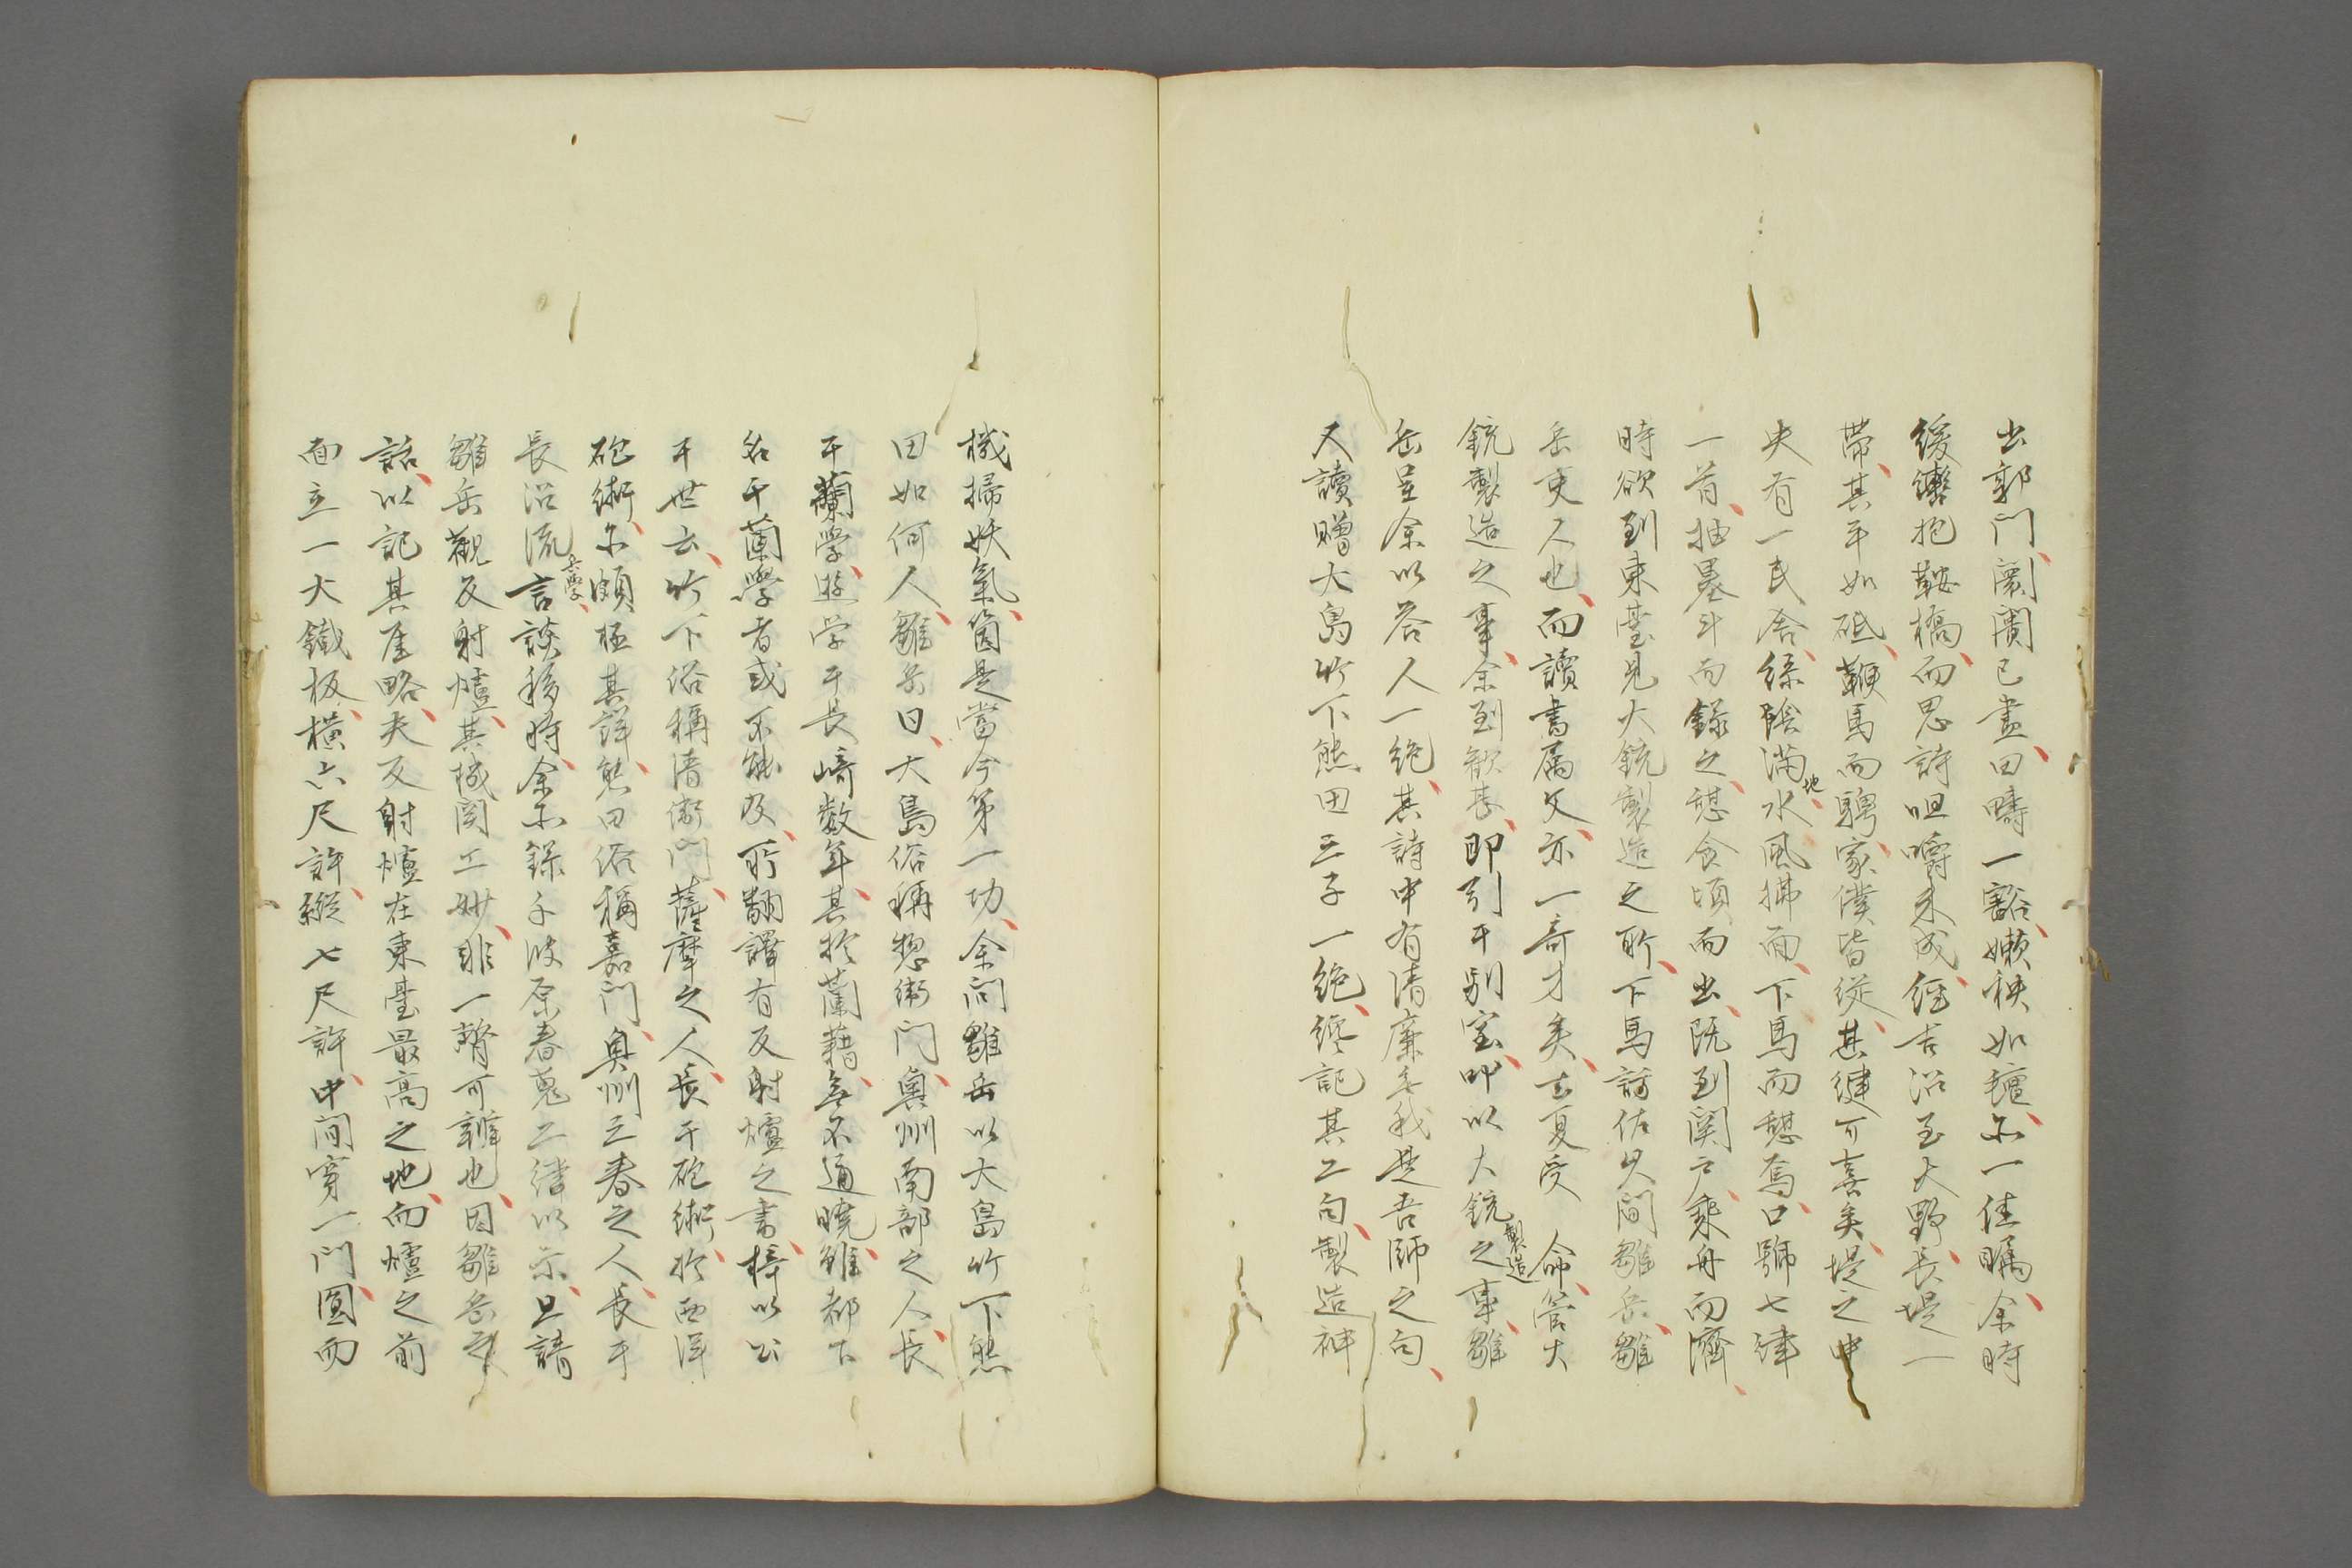 出郭門、闤闠已盡、田疇一豁、嫩秧如氊、亦一佳矚、余時
緩轡抱鞍橋、而思詩咀嚼未成、徑吉沼至大野、長堤一
帶、其平如砥、鞭馬而騁、家僕皆從、其健可喜矣、堤之中
央有一民舍、綠陰滿地、水風拂面、下馬而憩焉、口號七律
一首、抽墨斗而錄之、憩食頃而出、既到関戸、乘舟而濟、
時欲到東臺見大銃製造之所、下馬訪佐久間雛岳、雛
岳吏人也、而讀書属文、亦一奇才矣、去夏受　命、管大
銃製造之事、余到歓甚、即引于別室、叩以大銃製造之事、雛
岳呈余以答人一絶、其詩中有清廉毎我是吾師之句、
又讀贈大島竹下熊田三子一絶、纔記其二句、製造神
機掃妖氣、箇是當今第一功、余問雛岳以大島竹下熊
田如何人、雛岳曰、大島俗稱惣衛門、奥州南部之人、長
于蘭學、遊学于長崎數年、其於蘭籍、無不通曉、雖都下
名于蘭學者或不能及、所翻譯有反射爐之書、梓以公
于世云、竹下俗稱清衛門、薩摩之人、長于砲術、於西洋
砲術、亦頗極其詳、熊田俗稱嘉門、奥州三春之人、長于
長沼流兵學、言談移時、余亦錄千波原春蒐二律以示、且請
雛岳觀反射爐、其機関工妙、非一瞥可辨也、因雛岳之
話、以記其崖略、夫反射爐在東臺最高之地、而爐之前
面立一大鐵板、橫六尺許、縱七尺許、中間穿一門、圓而